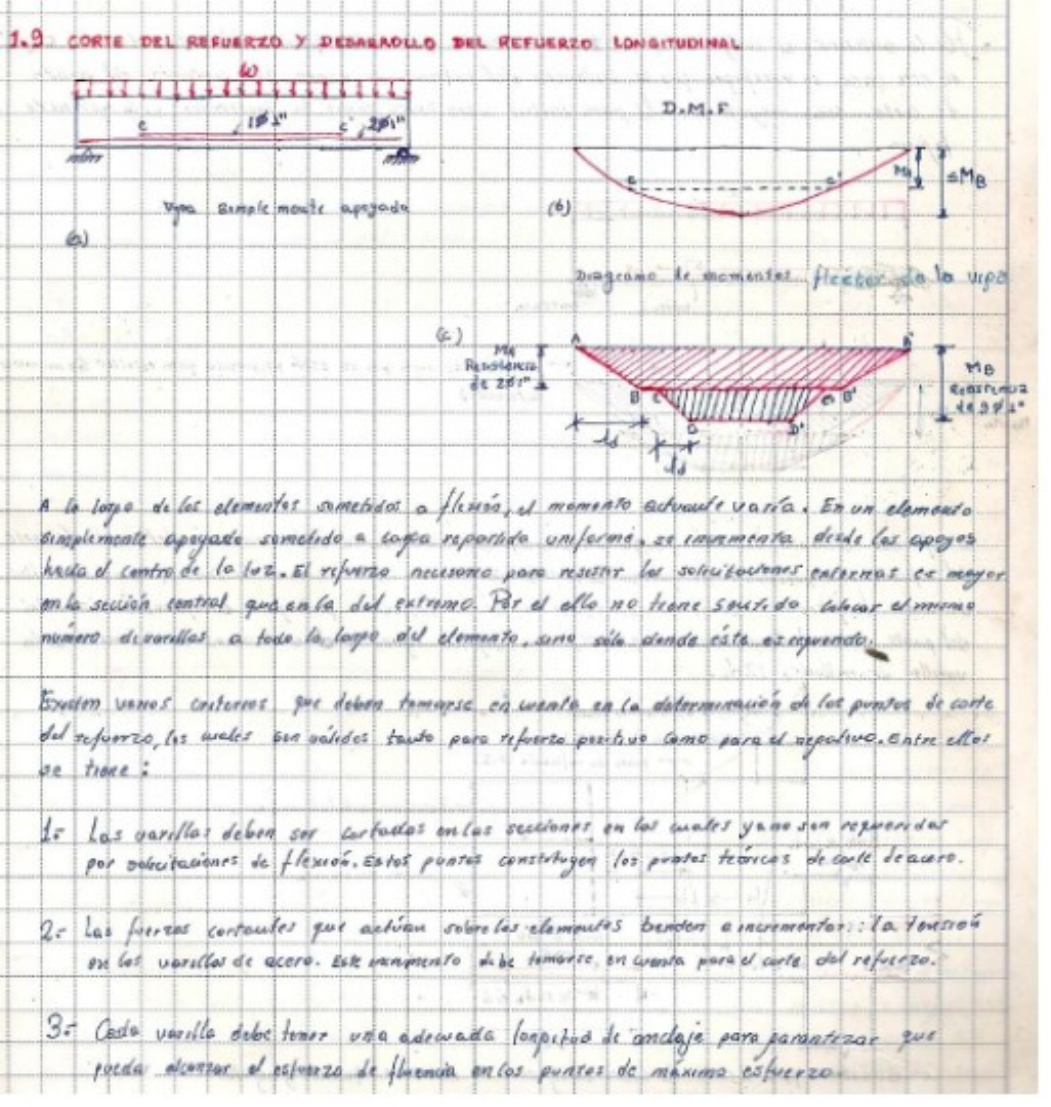 1.9 CORTE DEL REFUERZO Y DESARROLLO DEL REFUERZO LONGITUDINAL
ω
D.M.F
c 1ø1" c' 2ø1"
c c' MA ≤MB
Viga simplemente apoyada
(b)
(a)
Diagrama de momentos flector de la viga
(c)
A A'
MA
Resistencia
de 2ø1"
MB
Resistencia
de 3ø1"
B C C' B'
D D'
ld
ld
A lo largo de los elementos sometidos a flexión, el momento actuante varía. En un elemento
simplemente apoyado sometido a carga repartida uniforme, se incrementa desde los apoyos
hacia el centro de la luz. El refuerzo necesario para resistir las solicitaciones externas es mayor
en la sección central que en la del extremo. Por el ello no tiene sentido colocar el mismo
número de varillas a todo lo largo del elemento, sino sólo donde éste es requerido.
Existen varios criterios que deben tomarse en cuenta en la determinación de los puntos de corte
del refuerzo, los cuales son válidos tanto para refuerzo positivo como para el negativo. Entre ellos
se tiene :
1.- Las varillas deben ser cortadas en las secciones en las cuales ya no son requeridas
por solicitaciones de flexión. Estos puntos constituyen los puntos teóricos de corte de acero.
2.- Las fuerzas cortantes que actúan sobre los elementos tienden a incrementar la tensión
en las varillas de acero. Este incremento debe tomarse en cuenta para el corte del refuerzo.
3.- Cada varilla debe tener una adecuada longitud de anclaje para garantizar que
pueda alcanzar el esfuerzo de fluencia en los puntos de máximo esfuerzo.